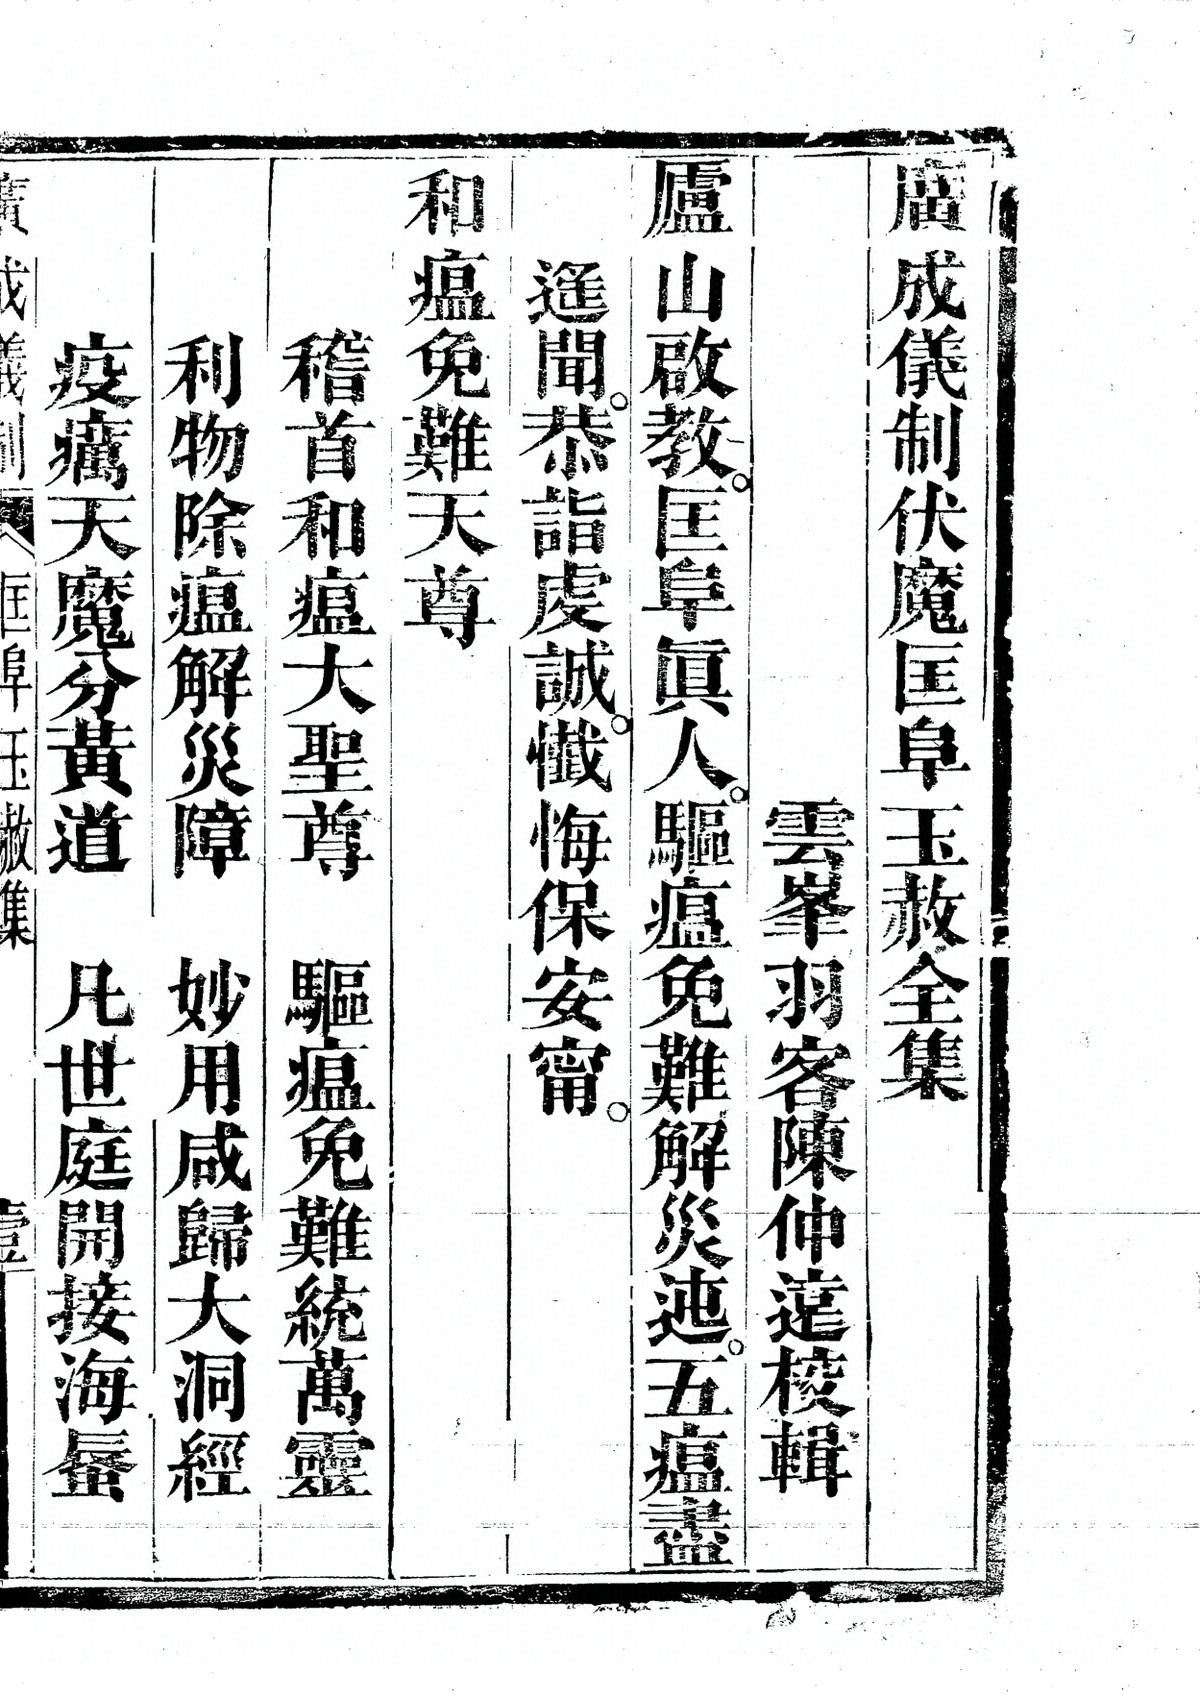 廣成儀制伏魔匡阜玉赦全集
雲峯羽客陳仲遠校輯
廬山啟教匡阜眞人驅瘟免難解災迍五瘟盡
遙聞恭詣虔誠懺悔保安甯
和瘟免難天尊
稽首和瘟大聖尊　驅瘟免難統萬靈
利物除瘟解災障　妙用咸歸大洞經
疫癘天魔分黃道　凡世庭開接海蜃
廣成儀制　匡阜玉赦集　壹